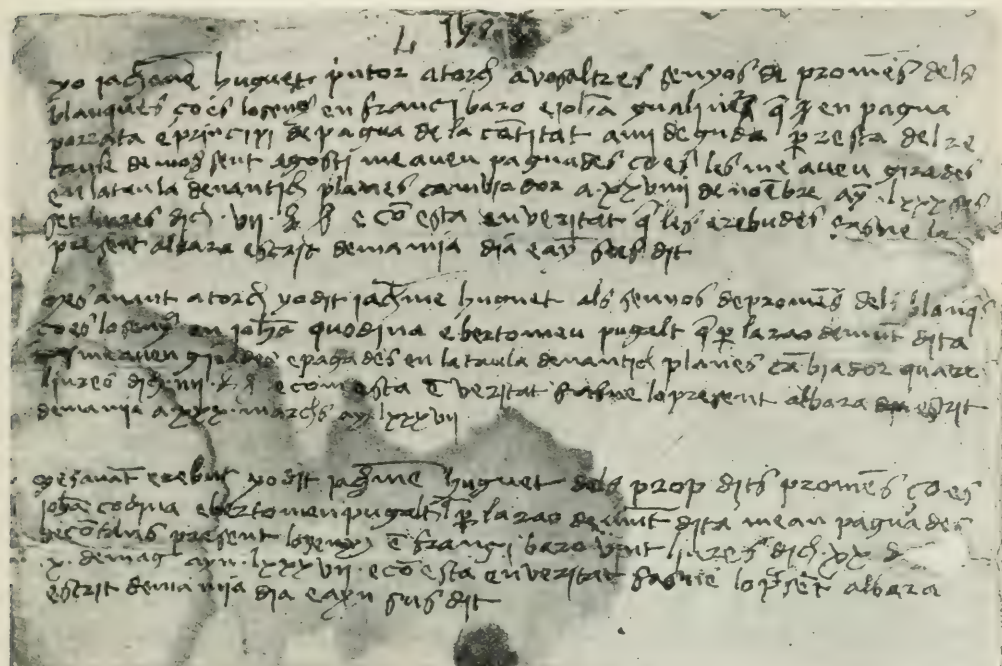 yo jachme huguet pintor atorch a vosaltres senyos de promens dels
blanquesço es lo senyer en franci baro e joha gualines q en pagua
porrata e principi de pagua de la cantitat a mi deguda p resta del re
taule de mos sent agosti me aveu paguades ço es les me aveu girades
en la taula den antich planes cambiador a xxviiii de noembre ay lxxx sis
set liures dich vii ₶ s e co esta en veritat q les e rebudes fas ne lo
present albara escrit de ma mija dia e ay sus dit
mes avant atorch yo dit jachme huguet als senyos de promens dels blanqs
ço es lo senyer en joha quodina e bertomeu pugalt q p la rao demunt dita
me aven girades e pagades en la taula den antich planes cabiador quatre
liures dich iiii ₶ s e com esta e veritat fas ne lo present albara escrit
de ma mija a xxx marchs ay lxxxvii
mes avat e rebut yo dit jachme huguet dels prop dits promens ço es
joha codina e bertomeu pugalt p la rao demunt dita me an paguades
de contans present lo senyer e franci baro vint liures dich xx ₶
x de mag ayn lxxxvii e co esta en veritat fas ne lo psent albara
escrit de ma mija dia e ayn sus dit